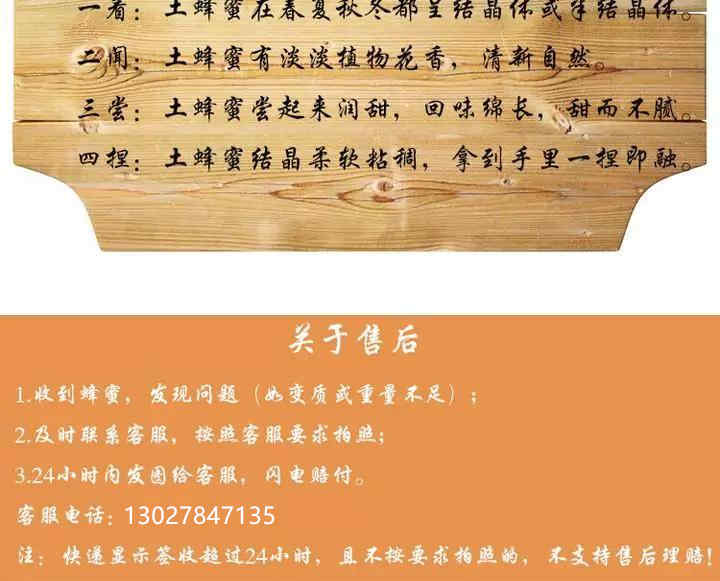 一看：土蜂蜜在春夏秋冬都呈结晶体或半结晶体。
二闻：土蜂蜜有淡淡植物花香，清新自然。
三尝：土蜂蜜尝起来润甜，回味绵长，甜而不腻。
四捏：土蜂蜜结晶柔软粘稠，拿到手里一捏即融。
关于售后
1.收到蜂蜜，发现问题（如变质或重量不足）；
2.及时联系客服，按照客服要求拍照；
3.24小时内发图给客服，闪电赔付。
客服电话：13027847135
注：快递显示签收超过24小时，且不按要求拍照的，不支持售后理赔！